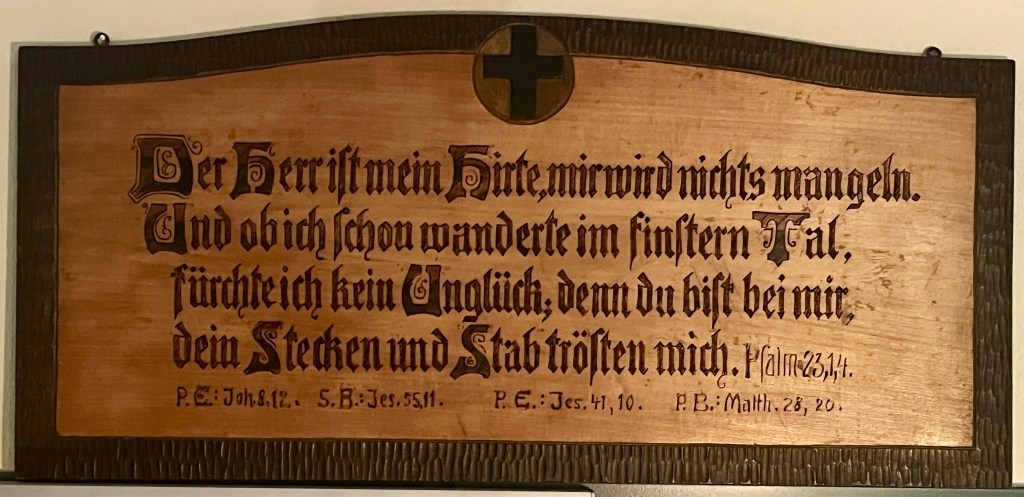 Der Herr ist mein Hirte, mir wird nichts mangeln.
Und ob ich schon wanderte im finstern Tal,
fürchte ich kein Unglück; denn du bist bei mir,
dein Stecken und Stab trösten mich. Psalm 23,1,4.
P. E.: Joh. 8, 12. S. B.: Jes. 55, 11. P. E.: Jes. 41, 10. P. B.: Matth. 28, 20.